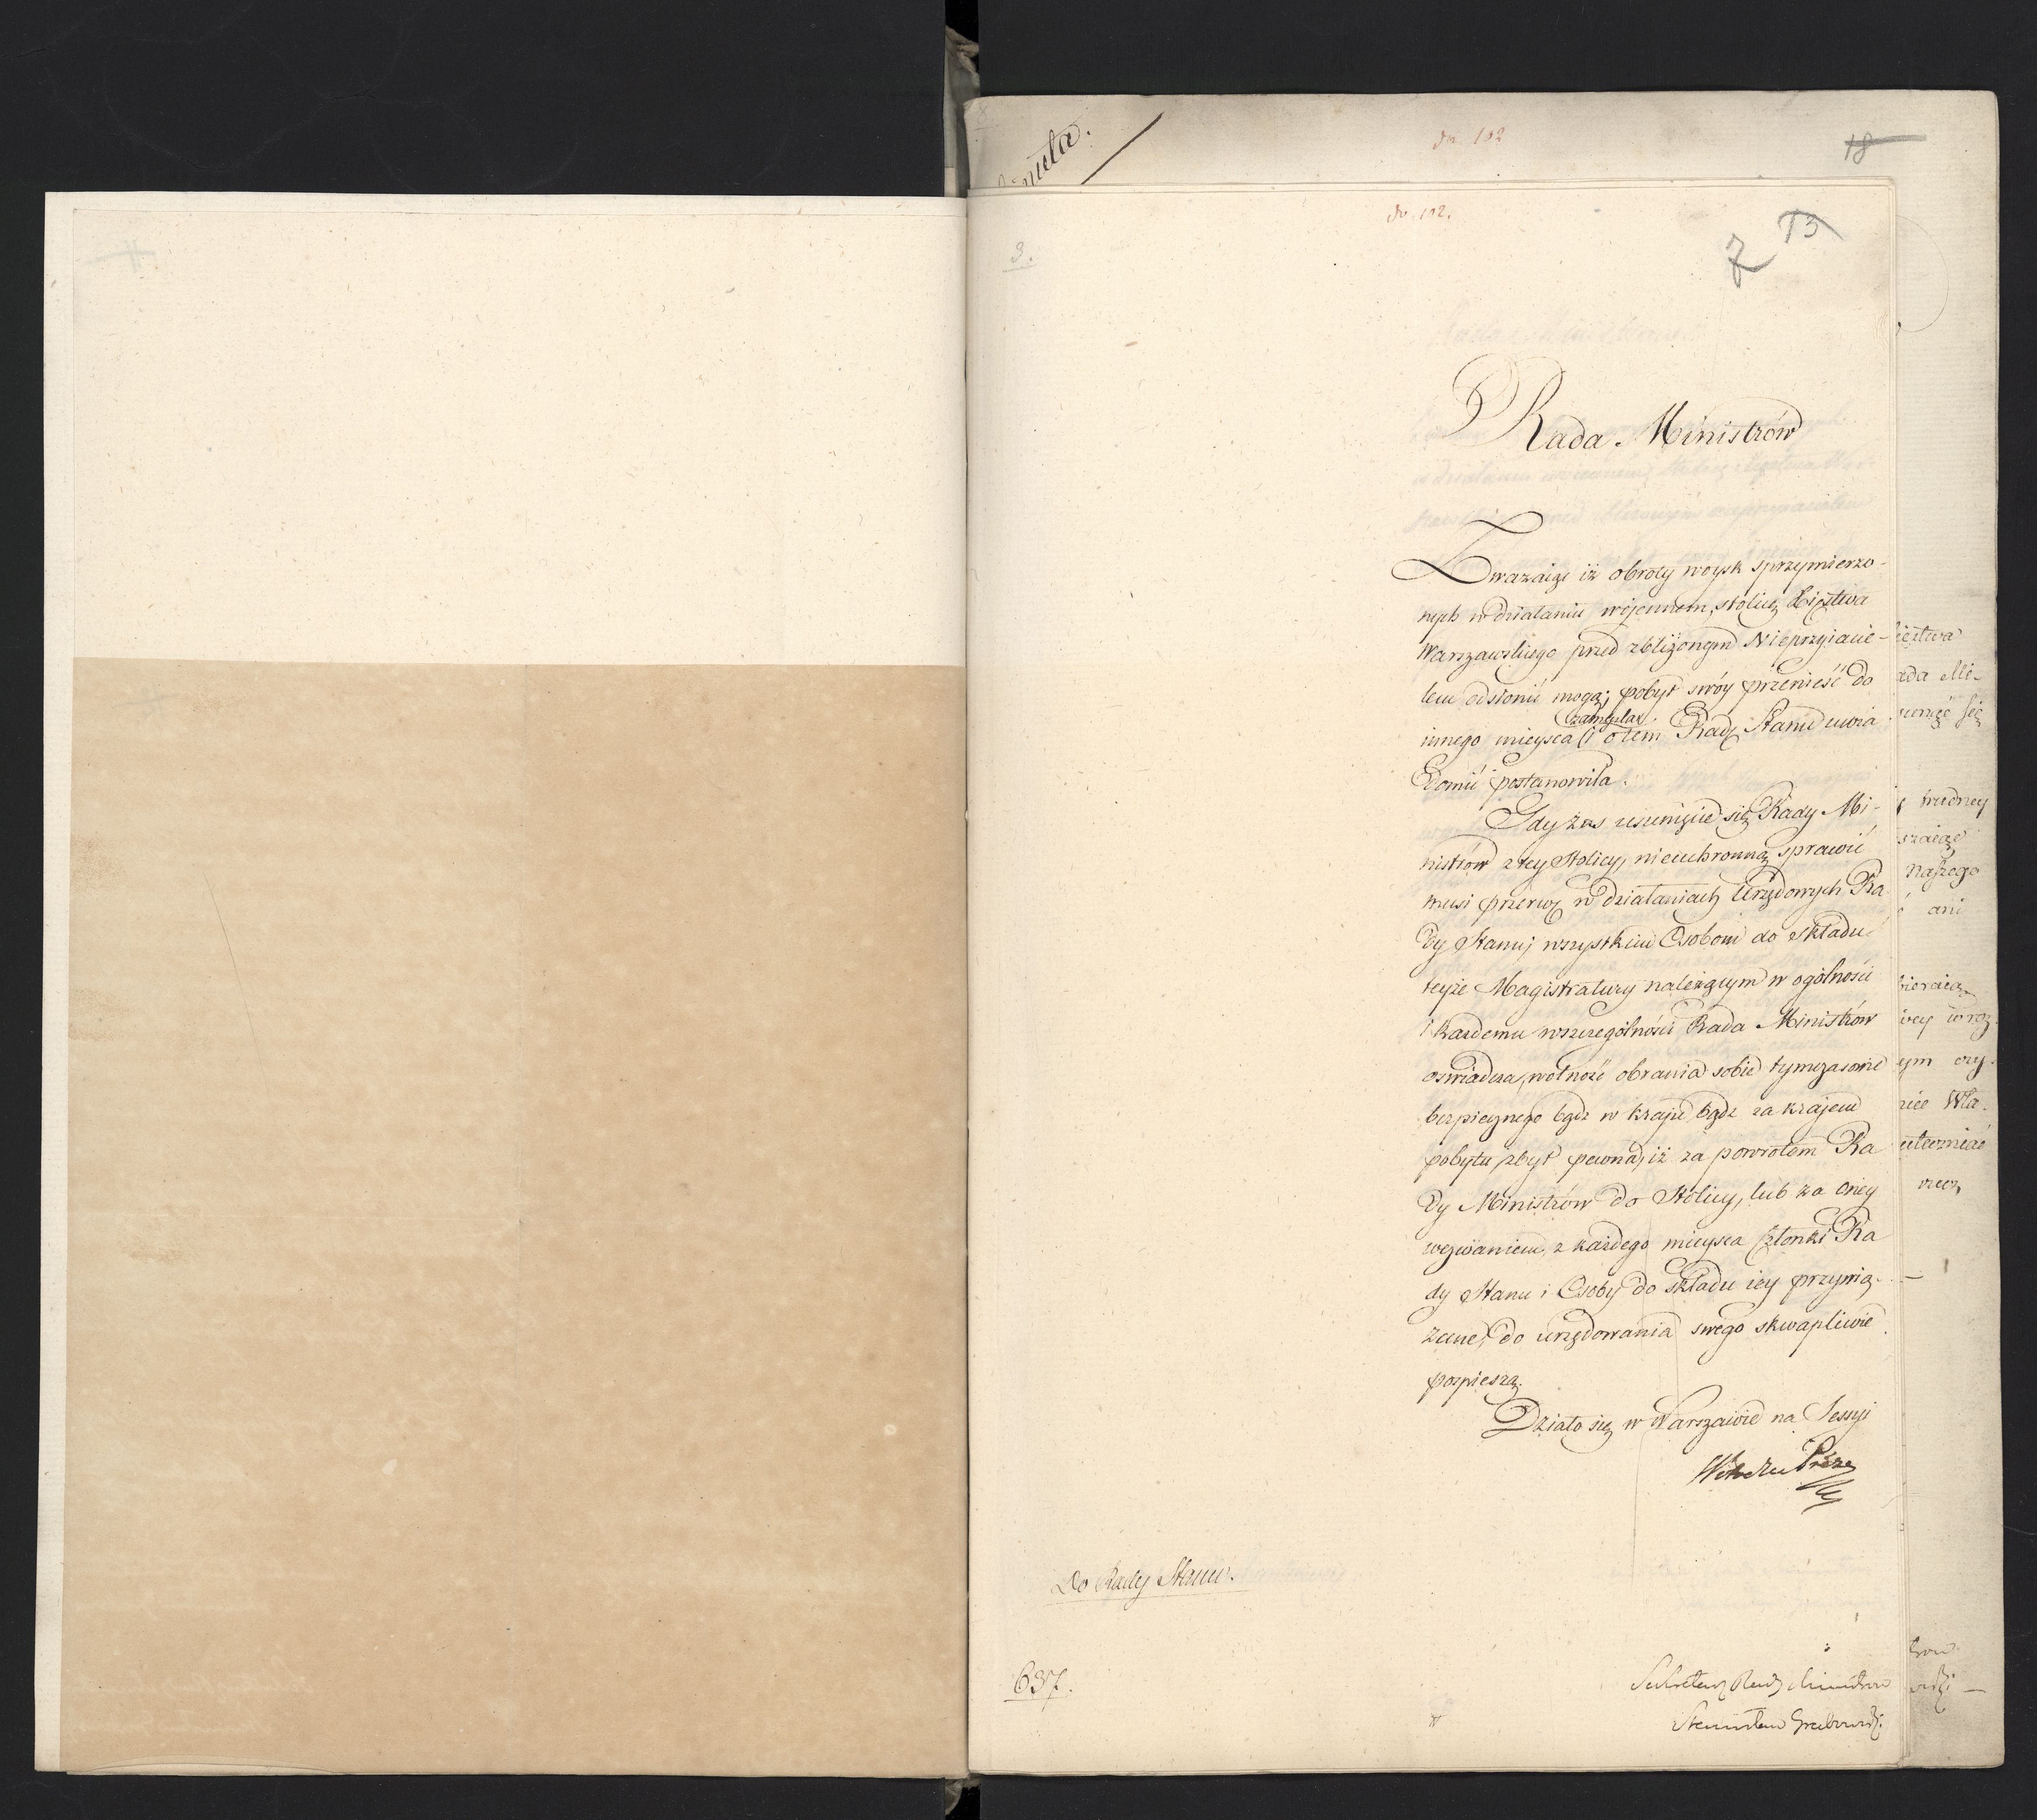 do 102
18
do 102.
3.
7 13
Rada Ministrów
Zwazaiąc iż obroty woysk sprzymierzo-
nych w działaniu wojennem, stolicę Xięstwa
Warszawskiego przed zbliżonym Nieprzyiacie-
lem odsłonić mogą; pobyt swóy przenieść do
innego mieysca (i o tem Radę Stanu uwia
domić postanowiła.
Gdy zas usunięcie się Rady Mi-
nistrów z tey Stolicy, nieuchronną sprawić
musi przerwę w działaniach Urzędowych Ra
dy Stanu; wszystkim Osobom do składu
teyże Magistratury należącym w ogólności
i każdemu wszczególności Rada Ministrów
oswiadcza, wolność obrania sobie tymczasowie
bezpiecznego bądz w kraju bądz za krajem
pobytu, zbyt pewna, iż za powrotem Ra
dy Ministrów do Stolicy, lub za oney
wezwaniem, z każdego mieysca Członki Ra
dy Stanu i Osoby do składu iey przywią-
zane, do urzędowania swego skwapliwie
pospieszą.
Działo się w Warszawie na Sessyi
Do Rady Stanu.
637.
Sekretarz Rady Ministrow
Stanisław Grabowski
ięstwa
ada Mi-
trudney
Naszego
ani
ym czy
Wła-
rzecz